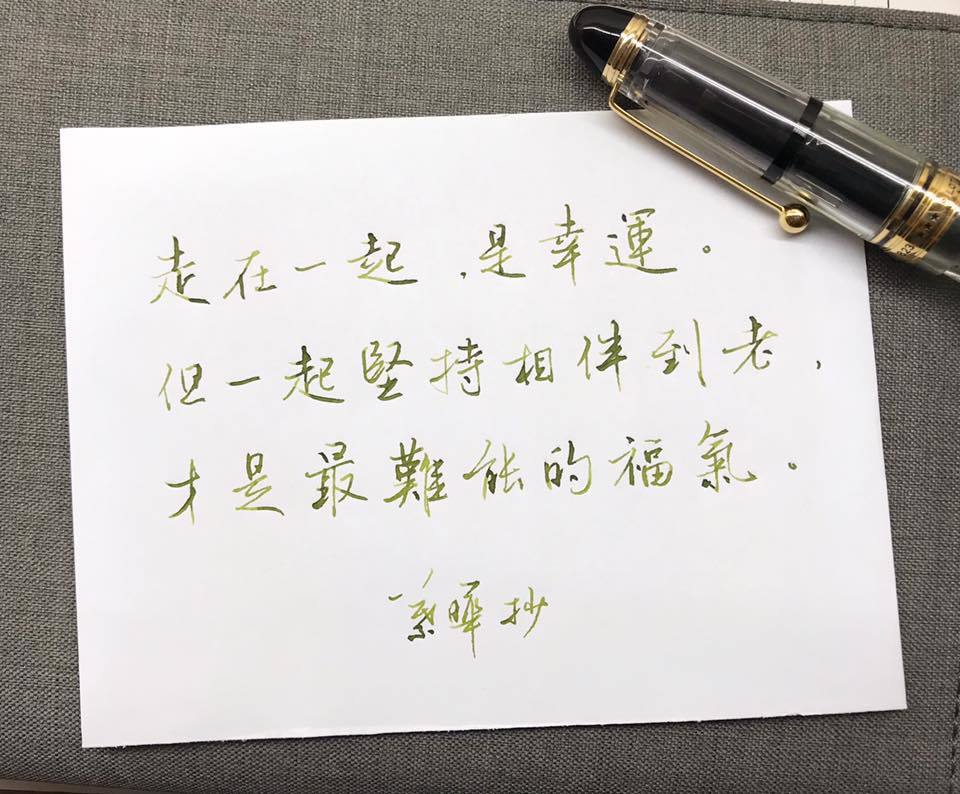 走在一起，是幸運。
但一起堅持相伴到老，
才是最難能的福氣。
曄抄